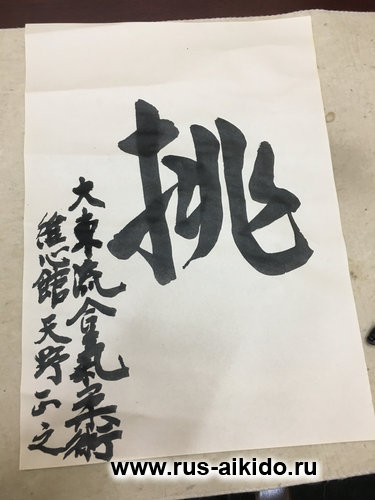 挑
大東流合氣柔術
進心館 天野正之
www.rus-aikido.ru